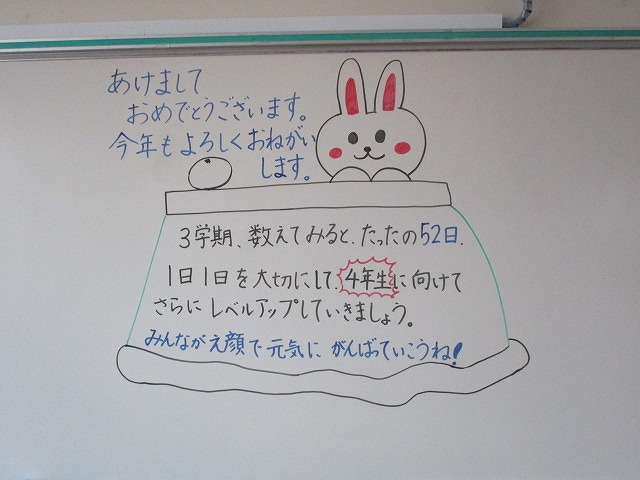 あけまして
おめでとうございます。
今年もよろしくおねがい
します。
3学期、数えてみると、たったの52日.
1日1日を大切にして、4年生に向けて
さらにレベルアップしていきましょう。
みんなが え顔で元気に がんばっていこうね!